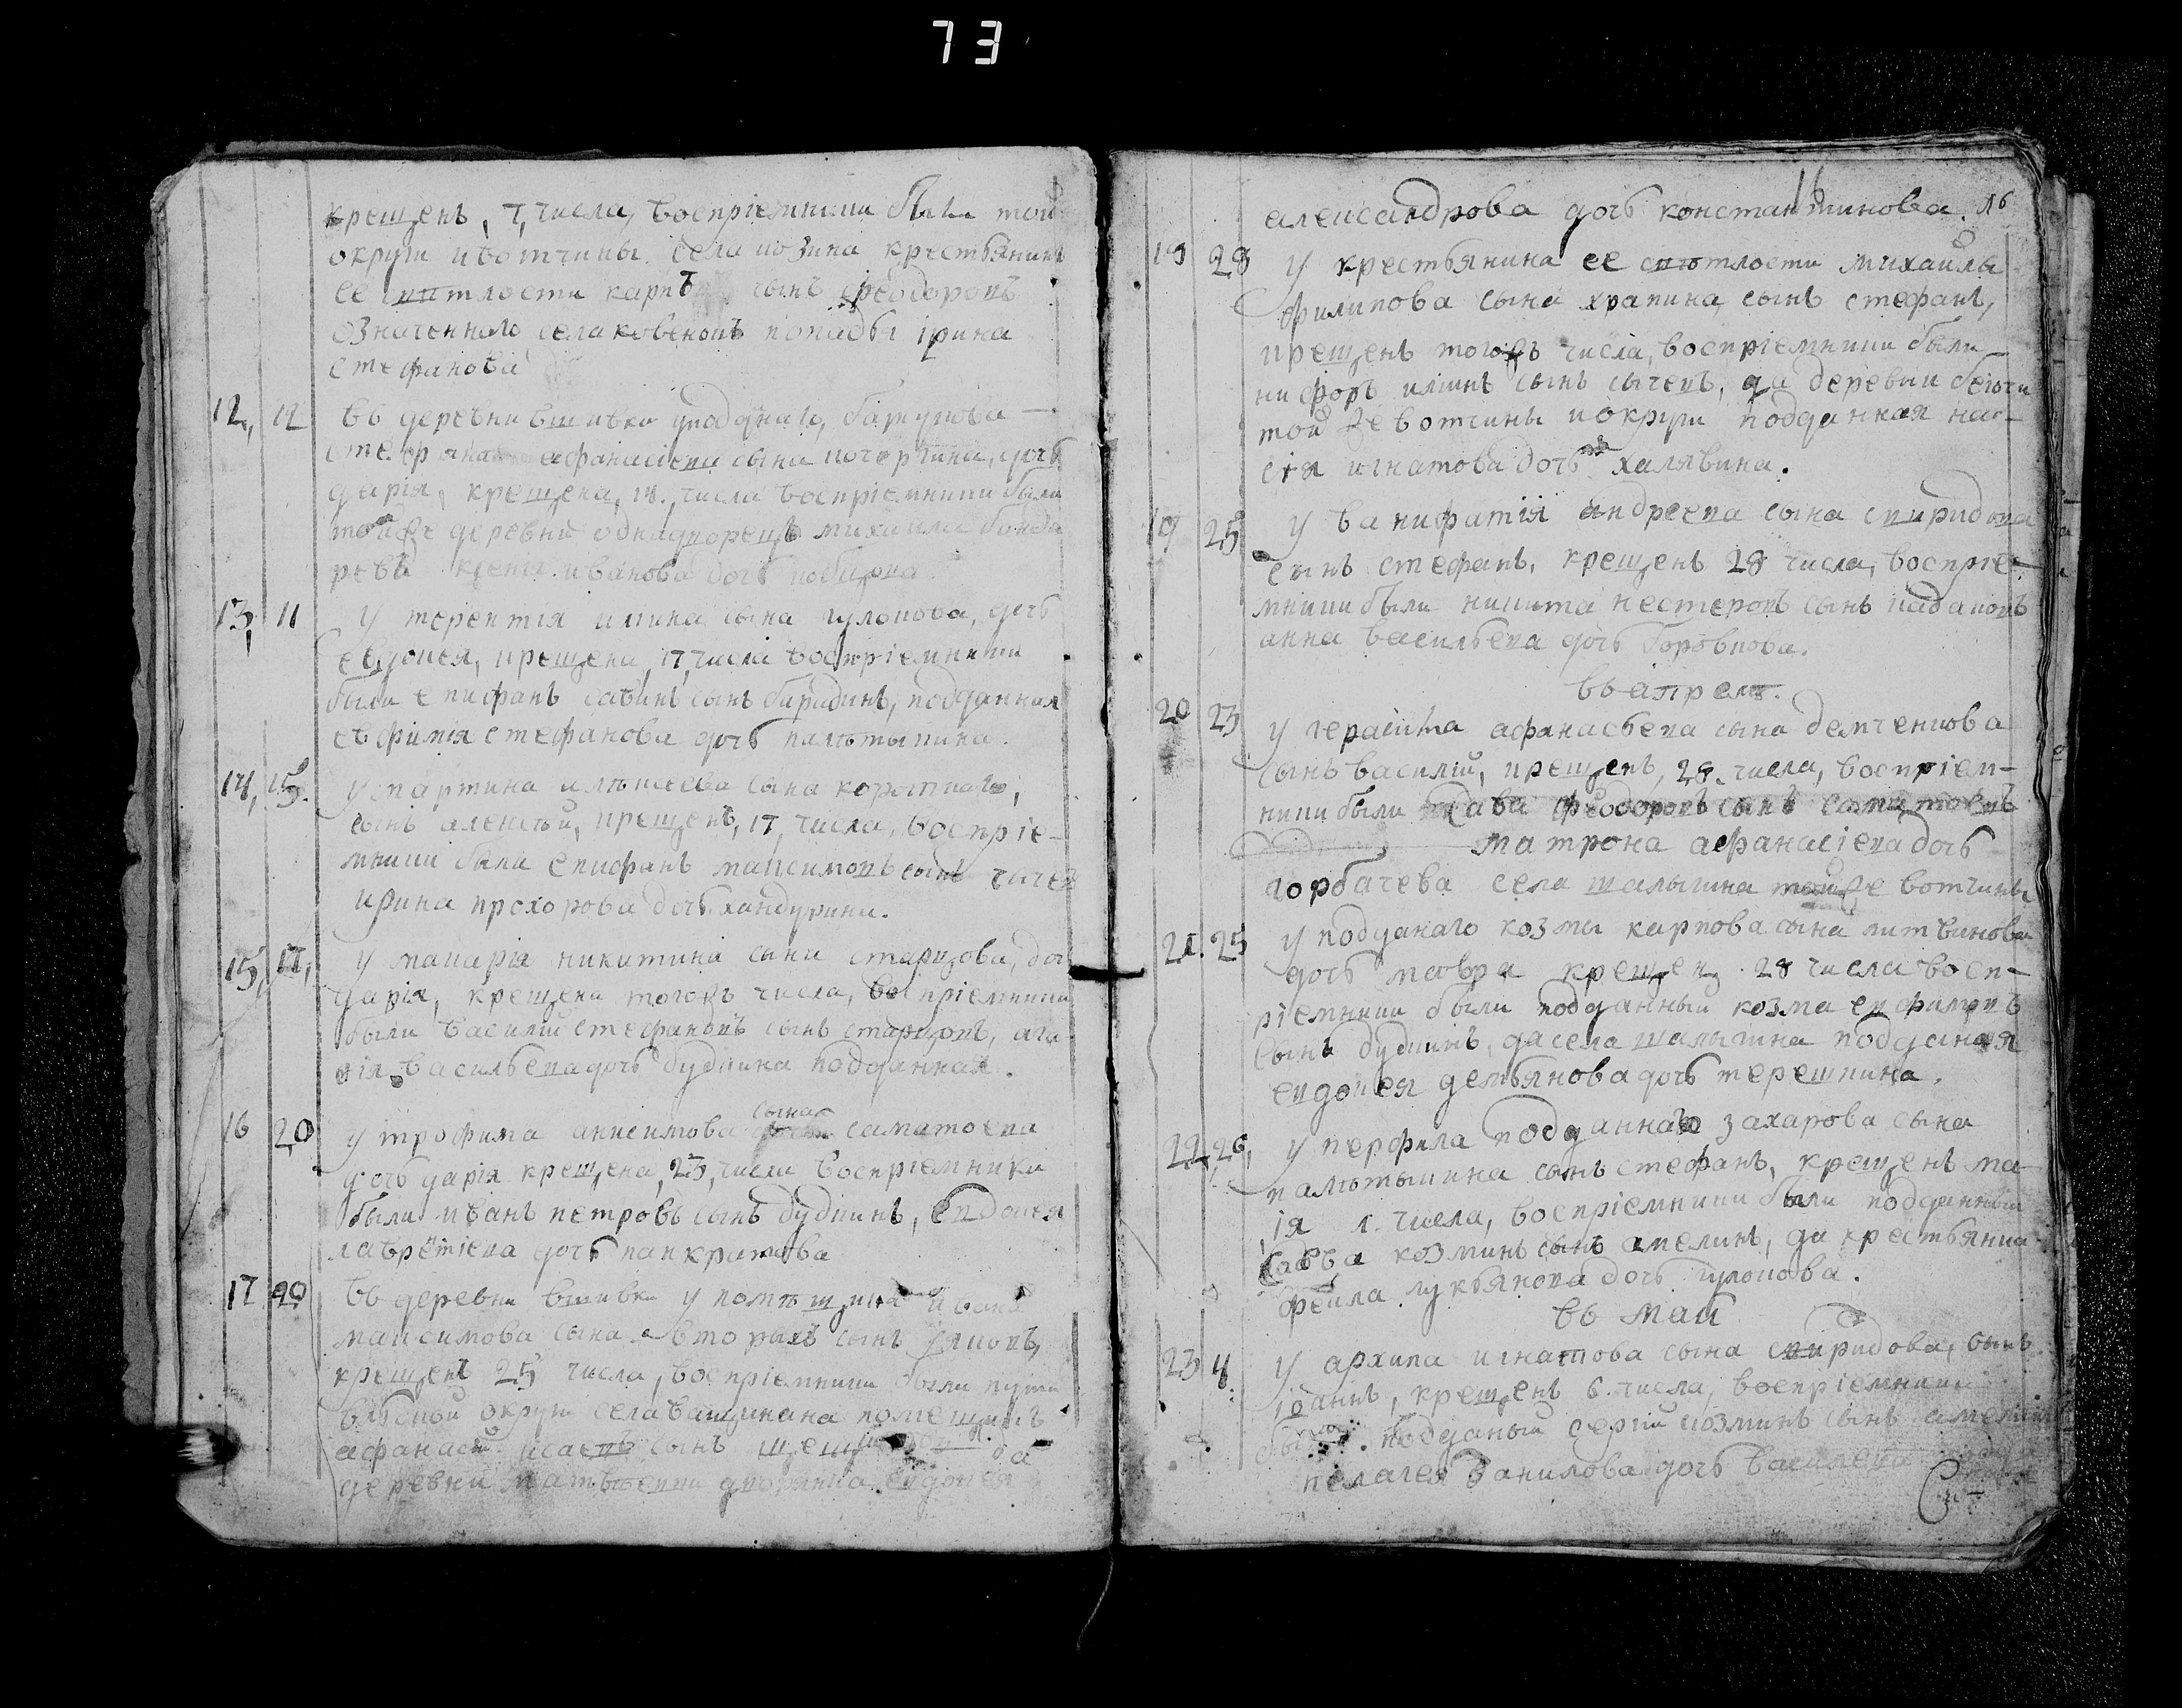 73
крещенъ, 7, числа, воспріемники были той
округи и вотчины села козина крестьянинъ
ее свѣтлости карпъ сынъ феодоровъ
означеннаго села попадья ірина
стефанова
12, 12 въ деревни вшивки у подданаго,
стефана афанасіева сына кочергина, дочь
дарія, крещена, 14, числа воспріемники были
тойже деревни однадворецъ михаила
иванова дочь
13, 11 у терентія илина сына гулокова, дочь
евдокея, крещена, 17, числа воспріемники
были епифанъ савинъ сынъ бирюдинъ, подданная
евфимія стефанова дочь палътыкина.
14, 15. у мартина алѣксеева сына короткаго,
сынъ алексѣй, крещенъ, 17, числа, воспріе-
мники были епифанъ максимовъ сынъ
ирина прохорова дочь хандурина.
15, 17, у макарія никитина сына старцова, доч
дарія, крещена тогожъ числа, воспріемники
были василий стефановъ сынъ старцовъ, ага
фія васильева дочь будкина подданная.
16 20 у трофима анисимова сына саматоева
дочь дарія крещена, 23, числа воспріемники
были иванъ петровъ сынъ будкинъ, евдокея
лаврѣтіева дочь панкратова
17 20 въ деревни вшивки у помѣщика ивана
максимова сына вторыхъ сынъ ияковъ,
крещенъ 25 числа, воспріемники были пути
вльской округи села ващинина помещикъ
афанасй исаевъ сынъ да
деревни дворянка евдокея
16
александрова дочь константинова. 16
18 28 у крестьянина ее свѣтлости михаилы
филипова сына храпина, сынъ стефанъ,
крещенъ тогожъ числа, воспріемники были
нифоръ илиинъ сынъ сычевъ, да деревни
той же вотчины и округи подданная нас-
сія игнатова дочь халявина.
19 25 у ванифатія андреева сына спиридова
сынъ стефанъ, крещенъ 28 числа, воспріе-
мники были никита нестеровъ сынъ кадаковъ
анна васильева дочь боровкова.
въ апрелѣ.
20 23 у герасима афанасьева сына демченкова
сынъ василий, крещенъ, 28. числа, воспріем-
ники были сава феодоровъ сынъ саматоевъ
матрона афанасіева дочь
горбачева села шалыгина тойже вотчины
21. 25 у подданаго козмы карпова сына литвинова
дочь мавра крещена 28 числа восп-
ріемники были подданный козма евфимовъ
сынъ будкинъ, да села шалыгина подданая
евдокея демьянова дочь терешкина.
22, 26, у перфила подданнаго захарова сына
палътыкина сынъ стефанъ, крещенъ ма-
ія 1. числа, воспріемники были подданный
сава козминъ сынъ амелинъ, да крестьянка
фекла лукьянова дочь гулокова.
въ маи
23 4 у архипа игнатова сына спиридова, сынъ
іоаннъ, крещенъ 6. числа, воспріемники
были подданый сергий козминъ сынъ амелинъ
пелагея данилова дочь